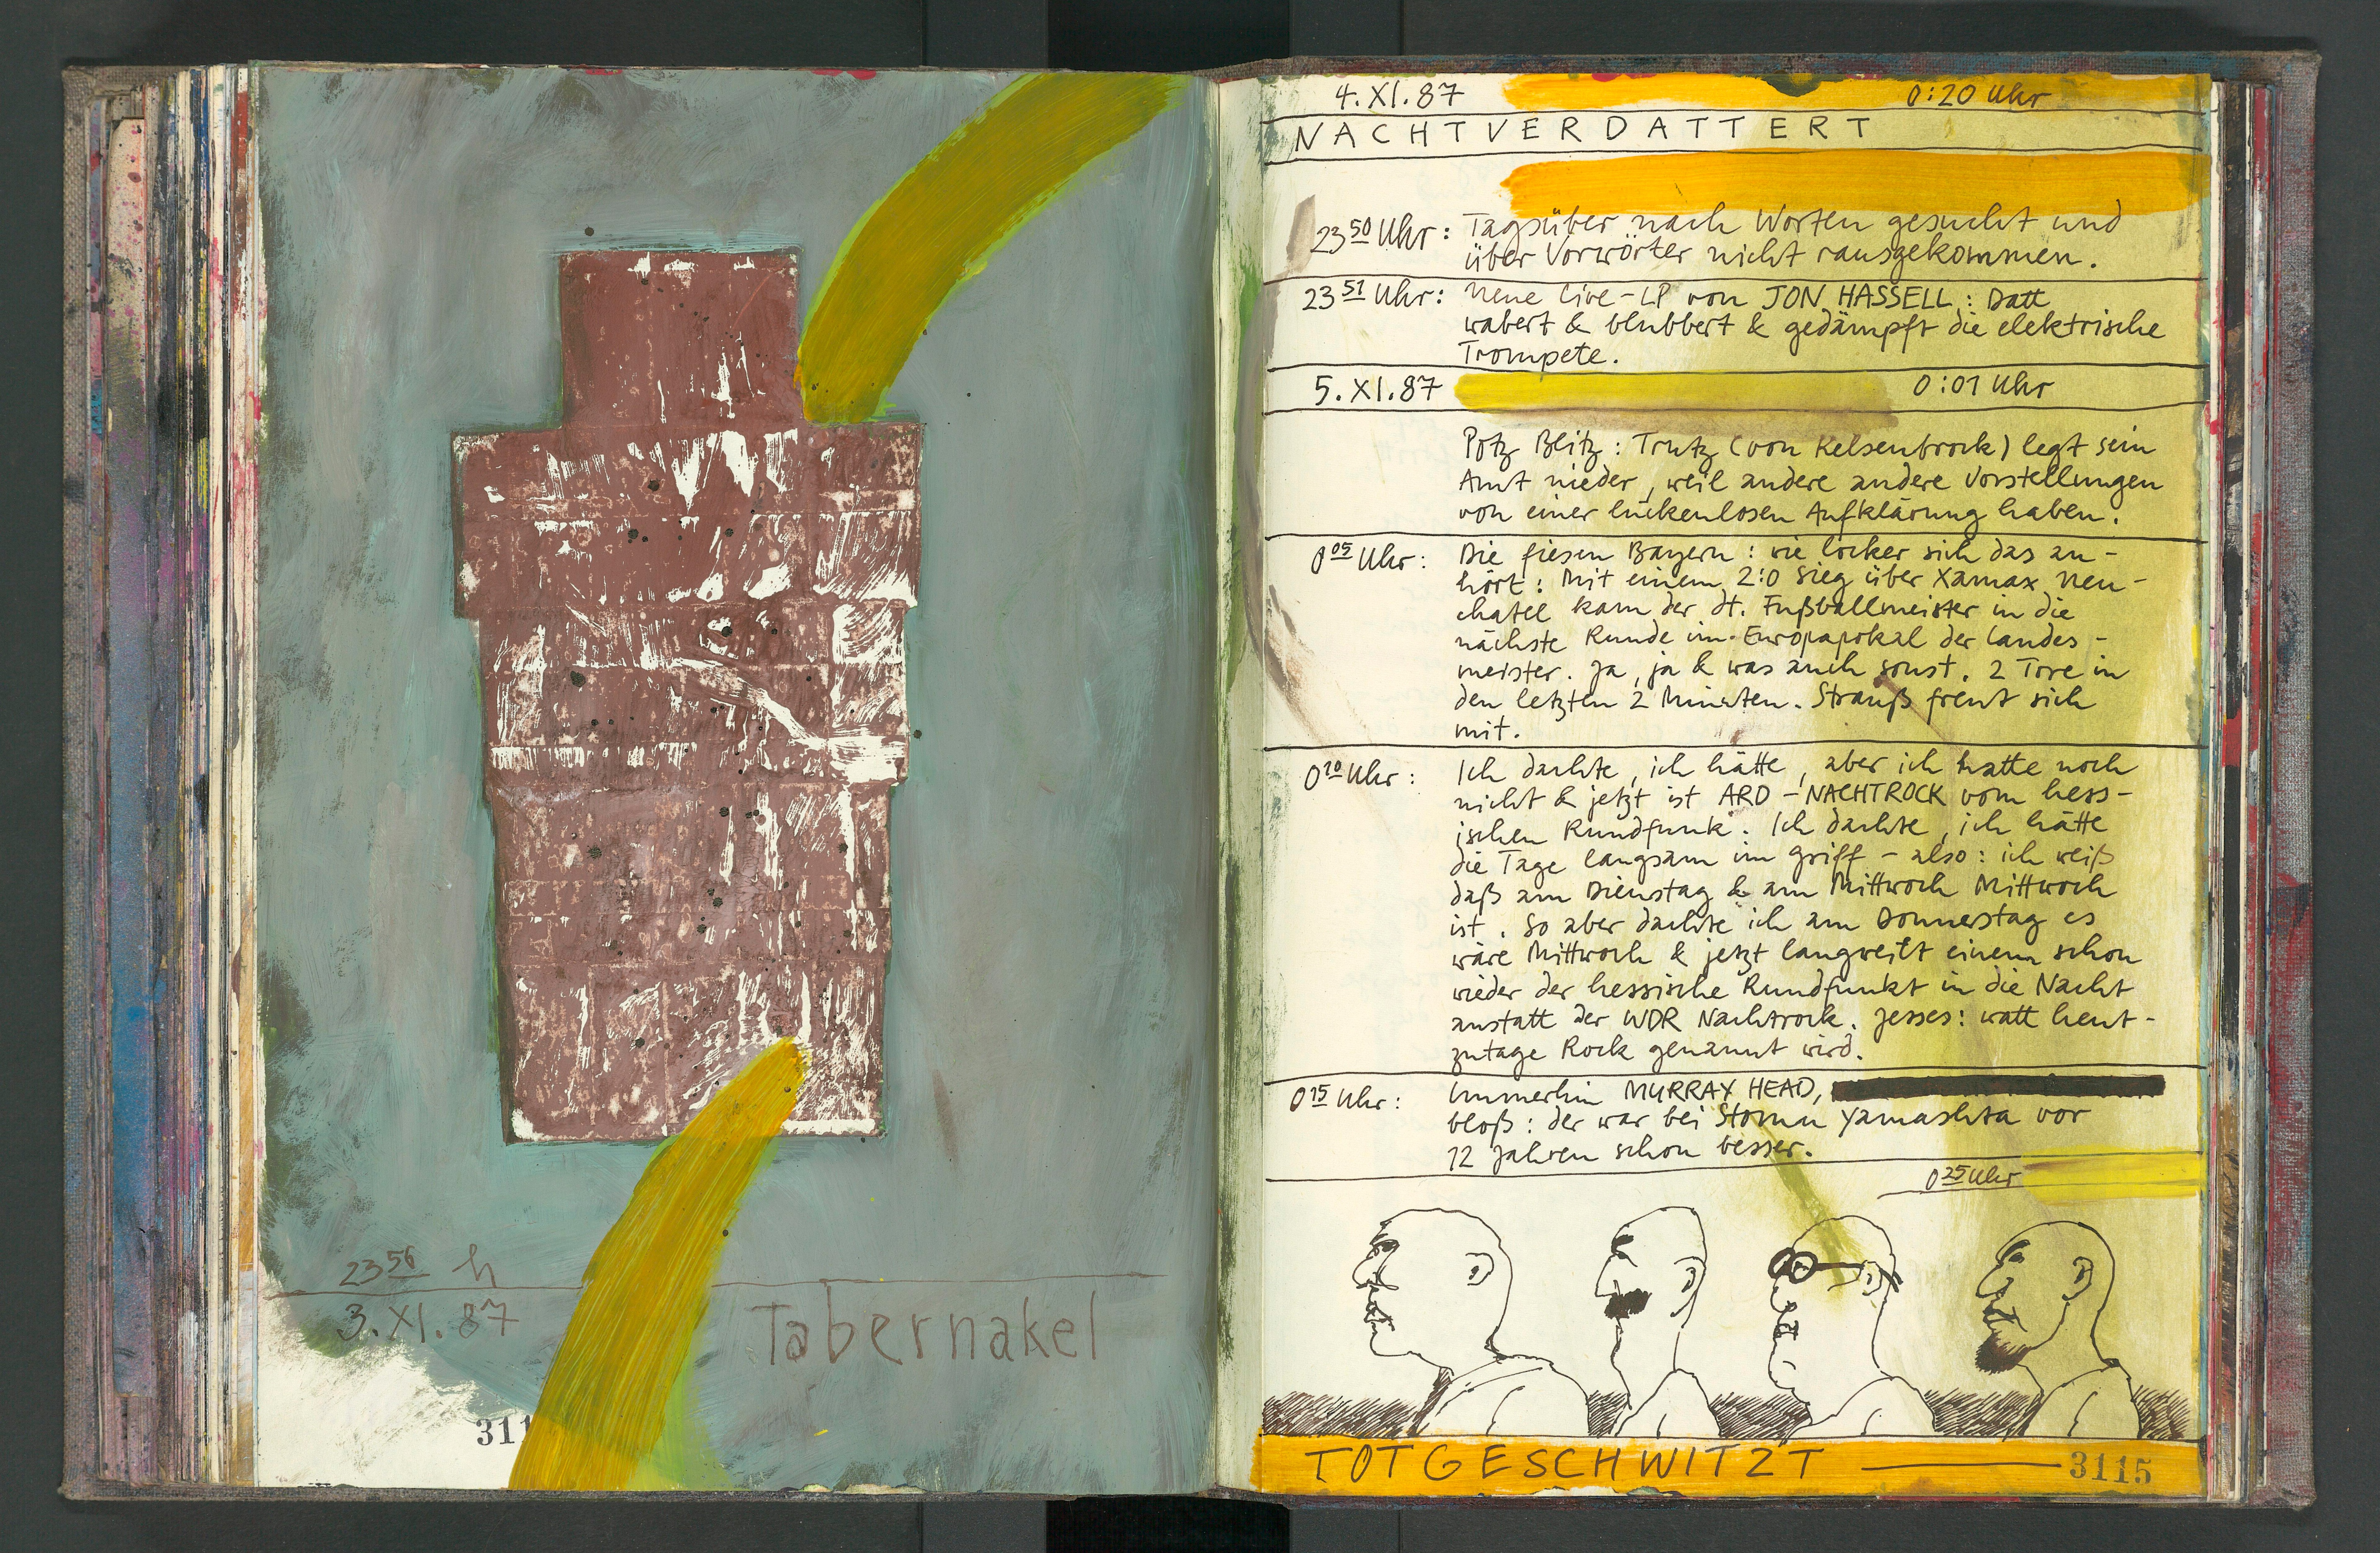 23 56 h
3. XI. 87
Tabernakel
311
4. XI. 87 0:20 Uhr
NACHTVERDATTERT
23 50 Uhr: Tagsüber nach Worten gesucht und
über Vorwörter nicht rausgekommen.
23 51 Uhr: Neue Live-LP von JON HASSELL: Datt
wabert & blubbert & gedämpft die elektrische
Trompete.
5. XI. 87 0:01 Uhr
Potz Blitz: Trutz (von Kelsenbrock) legt sein
Amt nieder, weil andere andere Vorstellungen
von einer lückenlosen Aufklärung haben.
0 05 Uhr: Die fiesen Bayern: wie locker sich das an-
hört: Mit einem 2:0 Sieg über Xamax Neu-
chatel kam der dt. Fußballmeister in die
nächste Runde im Europapokal der Landes-
meister. Ja, ja & was auch sonst. 2 Tore in
den letzten 2 Minuten. Strauß freut sich
mit.
0 10 Uhr: Ich dachte, ich hätte, aber ich hatte noch
nicht & jetzt ist ARD-NACHTROCK vom hess-
ischen Rundfunk. Ich dachte, ich hätte
die Tage langsam im Griff - also: ich weiß
daß am Dienstag & am Mittwoch Mittwoch
ist. So aber dachte ich am Donnerstag es
wäre Mittwoch & jetzt langweilt einem schon
wieder der hessische Rundfunkt in die Nacht
anstatt der WDR Nachtrock. Jesses: watt heut-
zutage Rock genannt wird.
0 15 Uhr: Immerhin MURRAY HEAD,
bloß: der war bei Stomu Yamashta vor
12 Jahren schon besser.
0 25 Uhr
TOTGESCHWITZT — 3115